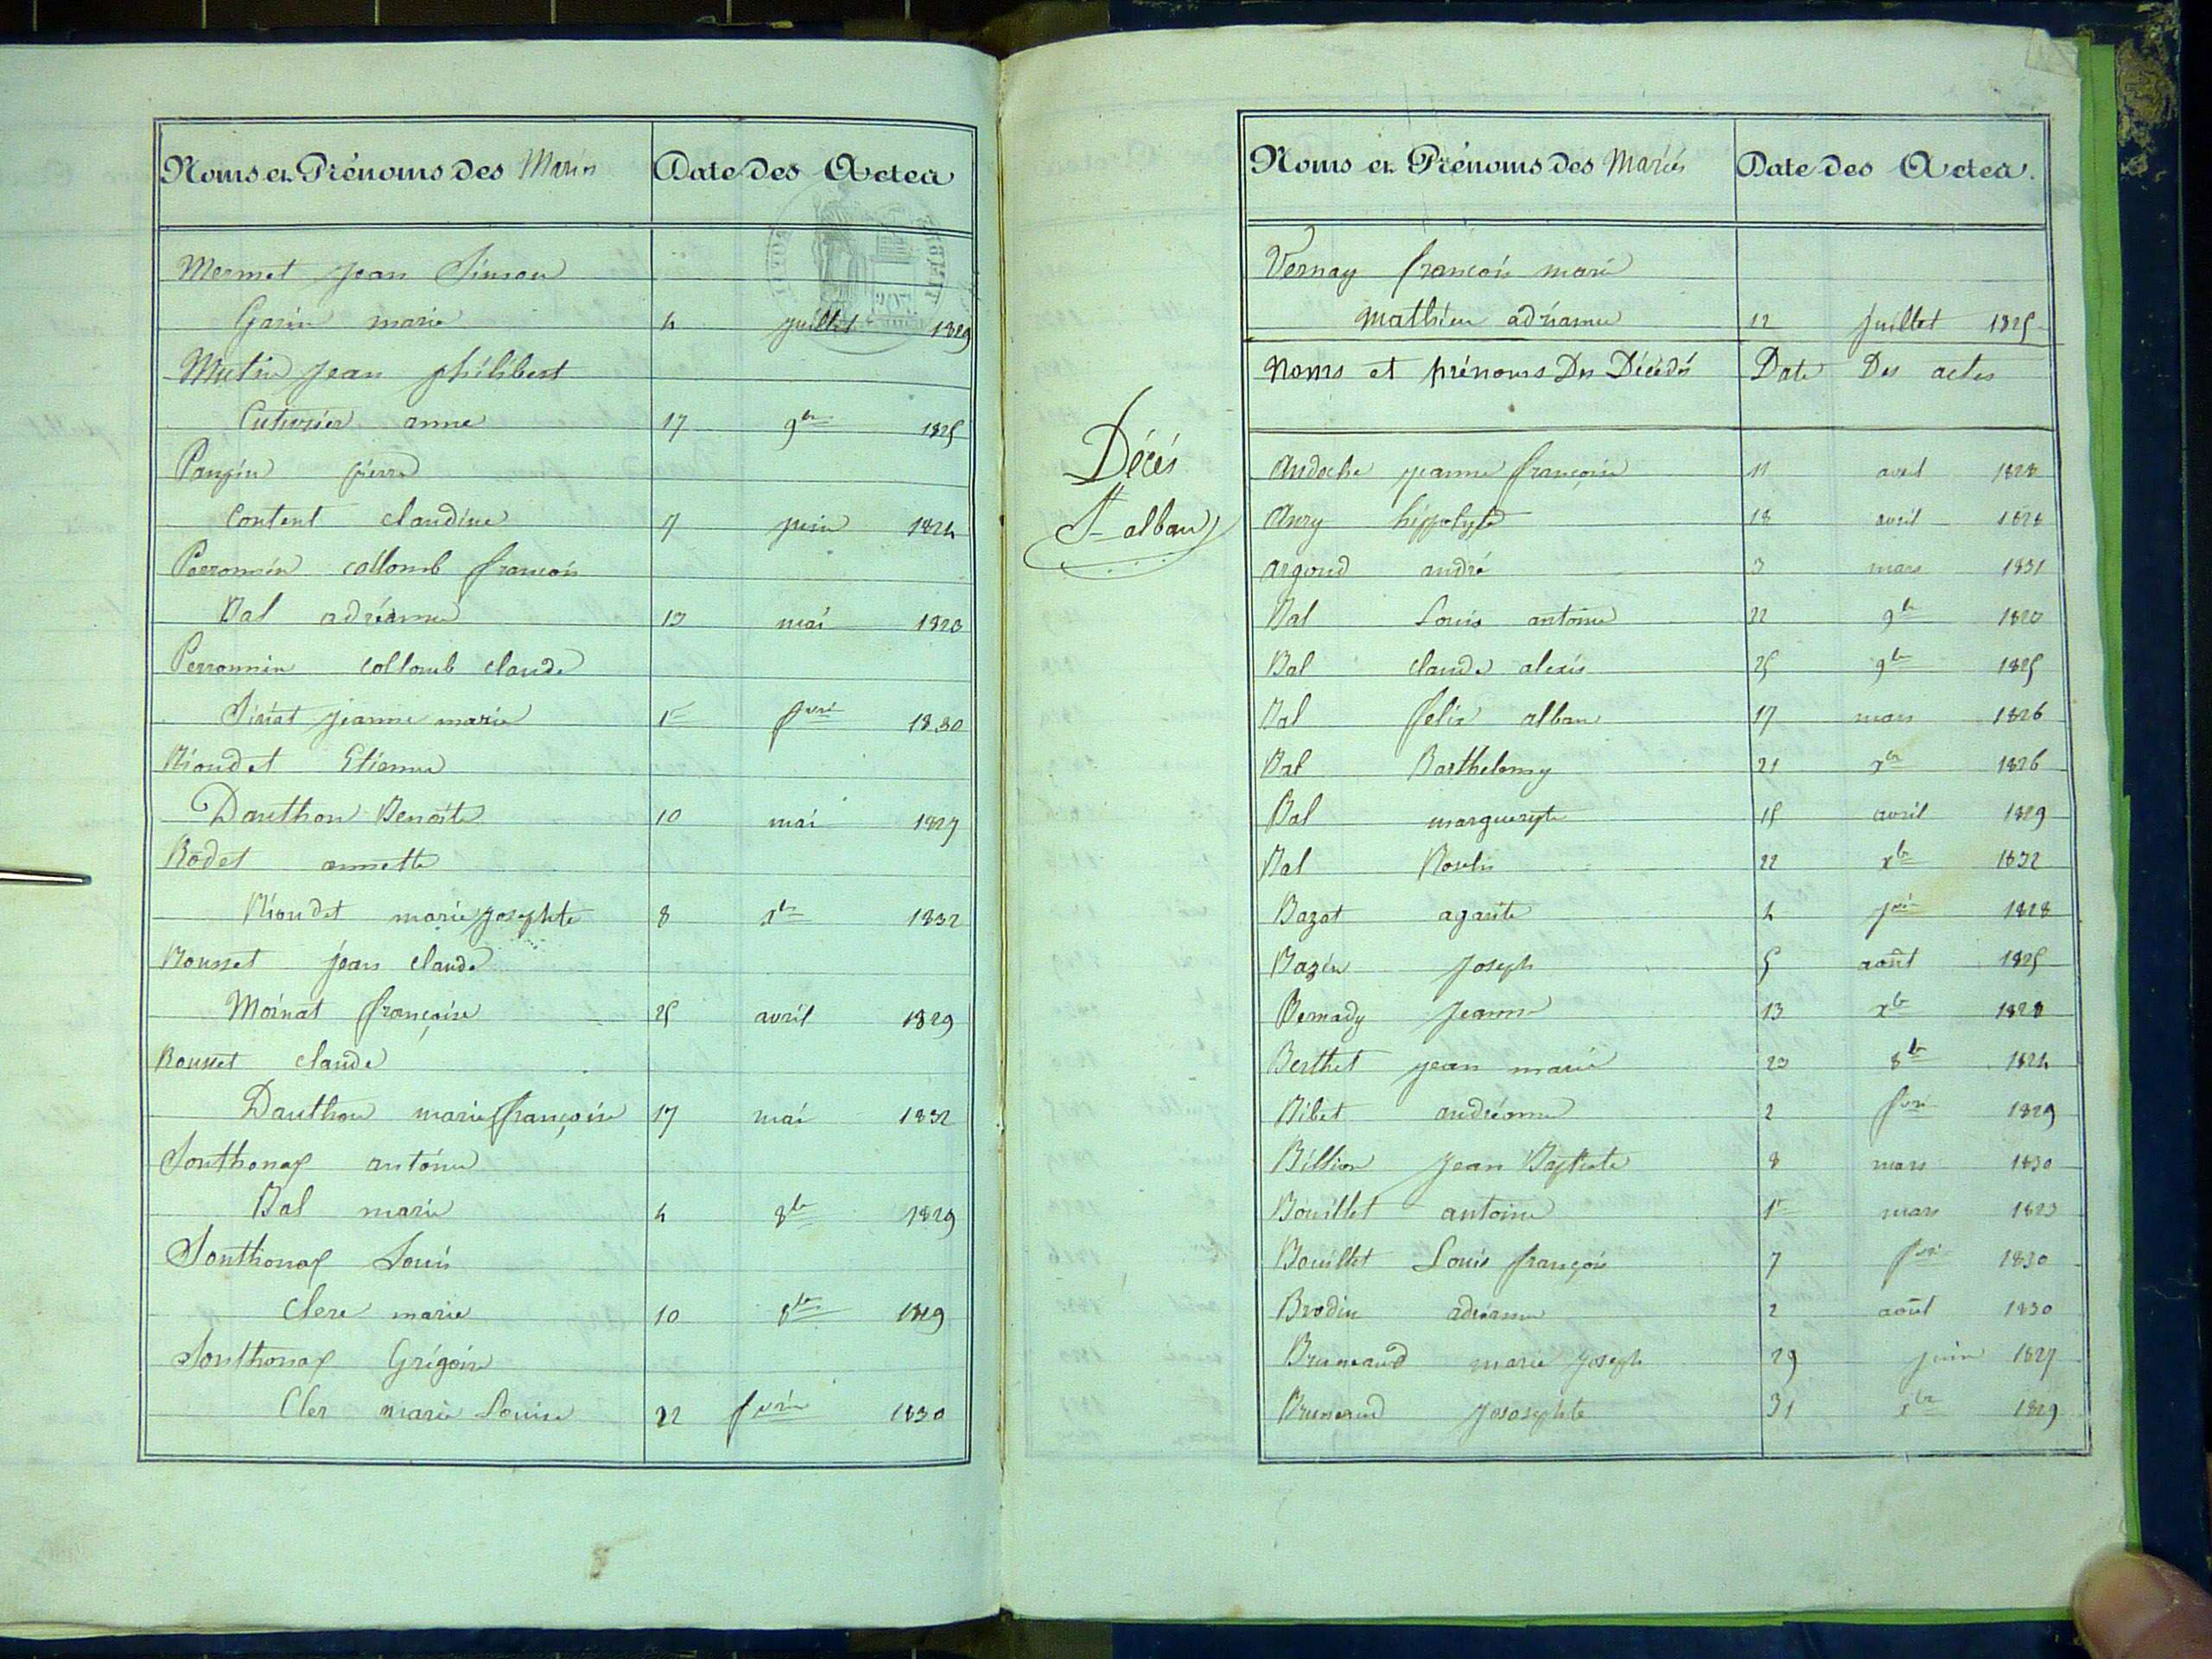 Noms et Prénoms des Mariés Date des Actes
Mermet jean Simon
Garin marie 4 juillet 1829
Mutin jean philibert
Cutivier anne 17 9bre 1825
Pangin pierre
Content claudine 7 juin 1824
Perronnin collomb françois
Bal adrianne 13 mai 1823
Perronnin collomb claude
Siriat jeanne marie 1er fvrier 1830
Rioudet Etienne
Dauthon Benoite 10 mai 1827
Rodet annette
Rioudet marie josephte 8 xbre 1832
Rousset jean claude
Moirnat françoise 25 avril 1829
Rousset claude
Dauthon marie françoise 17 mai 1832
Sonthonax antoine
Bal marie 4 8bre 1829
Sonthonax Louis
Clere marie 10 8bre 1829
Sonthonax Grégoire
Cler marie Louise 22 fvrier 1830
Noms et Prénoms des Mariés Date des Actes.
Vernay françois marie
Mathieu adrianne 12 juillet 1825
Noms et prénoms Des Décédés Date Des actes
Décès
St alban
Andoche jeanne françoise 11 avril 1828
Anry hippolyte 18 avril 1828
argoud andré 3 mars 1831
Bal Louis antoine 22 9bre 1820
Bal claude alexis 25 9bre 1825
Bal felix alban 17 mars 1826
Bal Barthelemy 21 xbre 1826
Bal marguerite 15 avril 1829
Bal Roselin 22 xbre 1832
Bazat agarite 4 jvier 1828
Bazin Joseph 5 août 1825
Bernady Jeanne 13 xbre 1828
Berthet jean marie 20 8bre 1824
Bibet andréanne 2 fvrier 1829
Billion Jean Baptiste 8 mars 1830
Bouillet antoine 1er mars 1823
Bouillet Louis françois 7 fvrier 1830
Brodin adrianne 2 août 1830
Bruneaud marie joseph 29 juin 1827
Bruneaud jososephte 31 xbre 1829